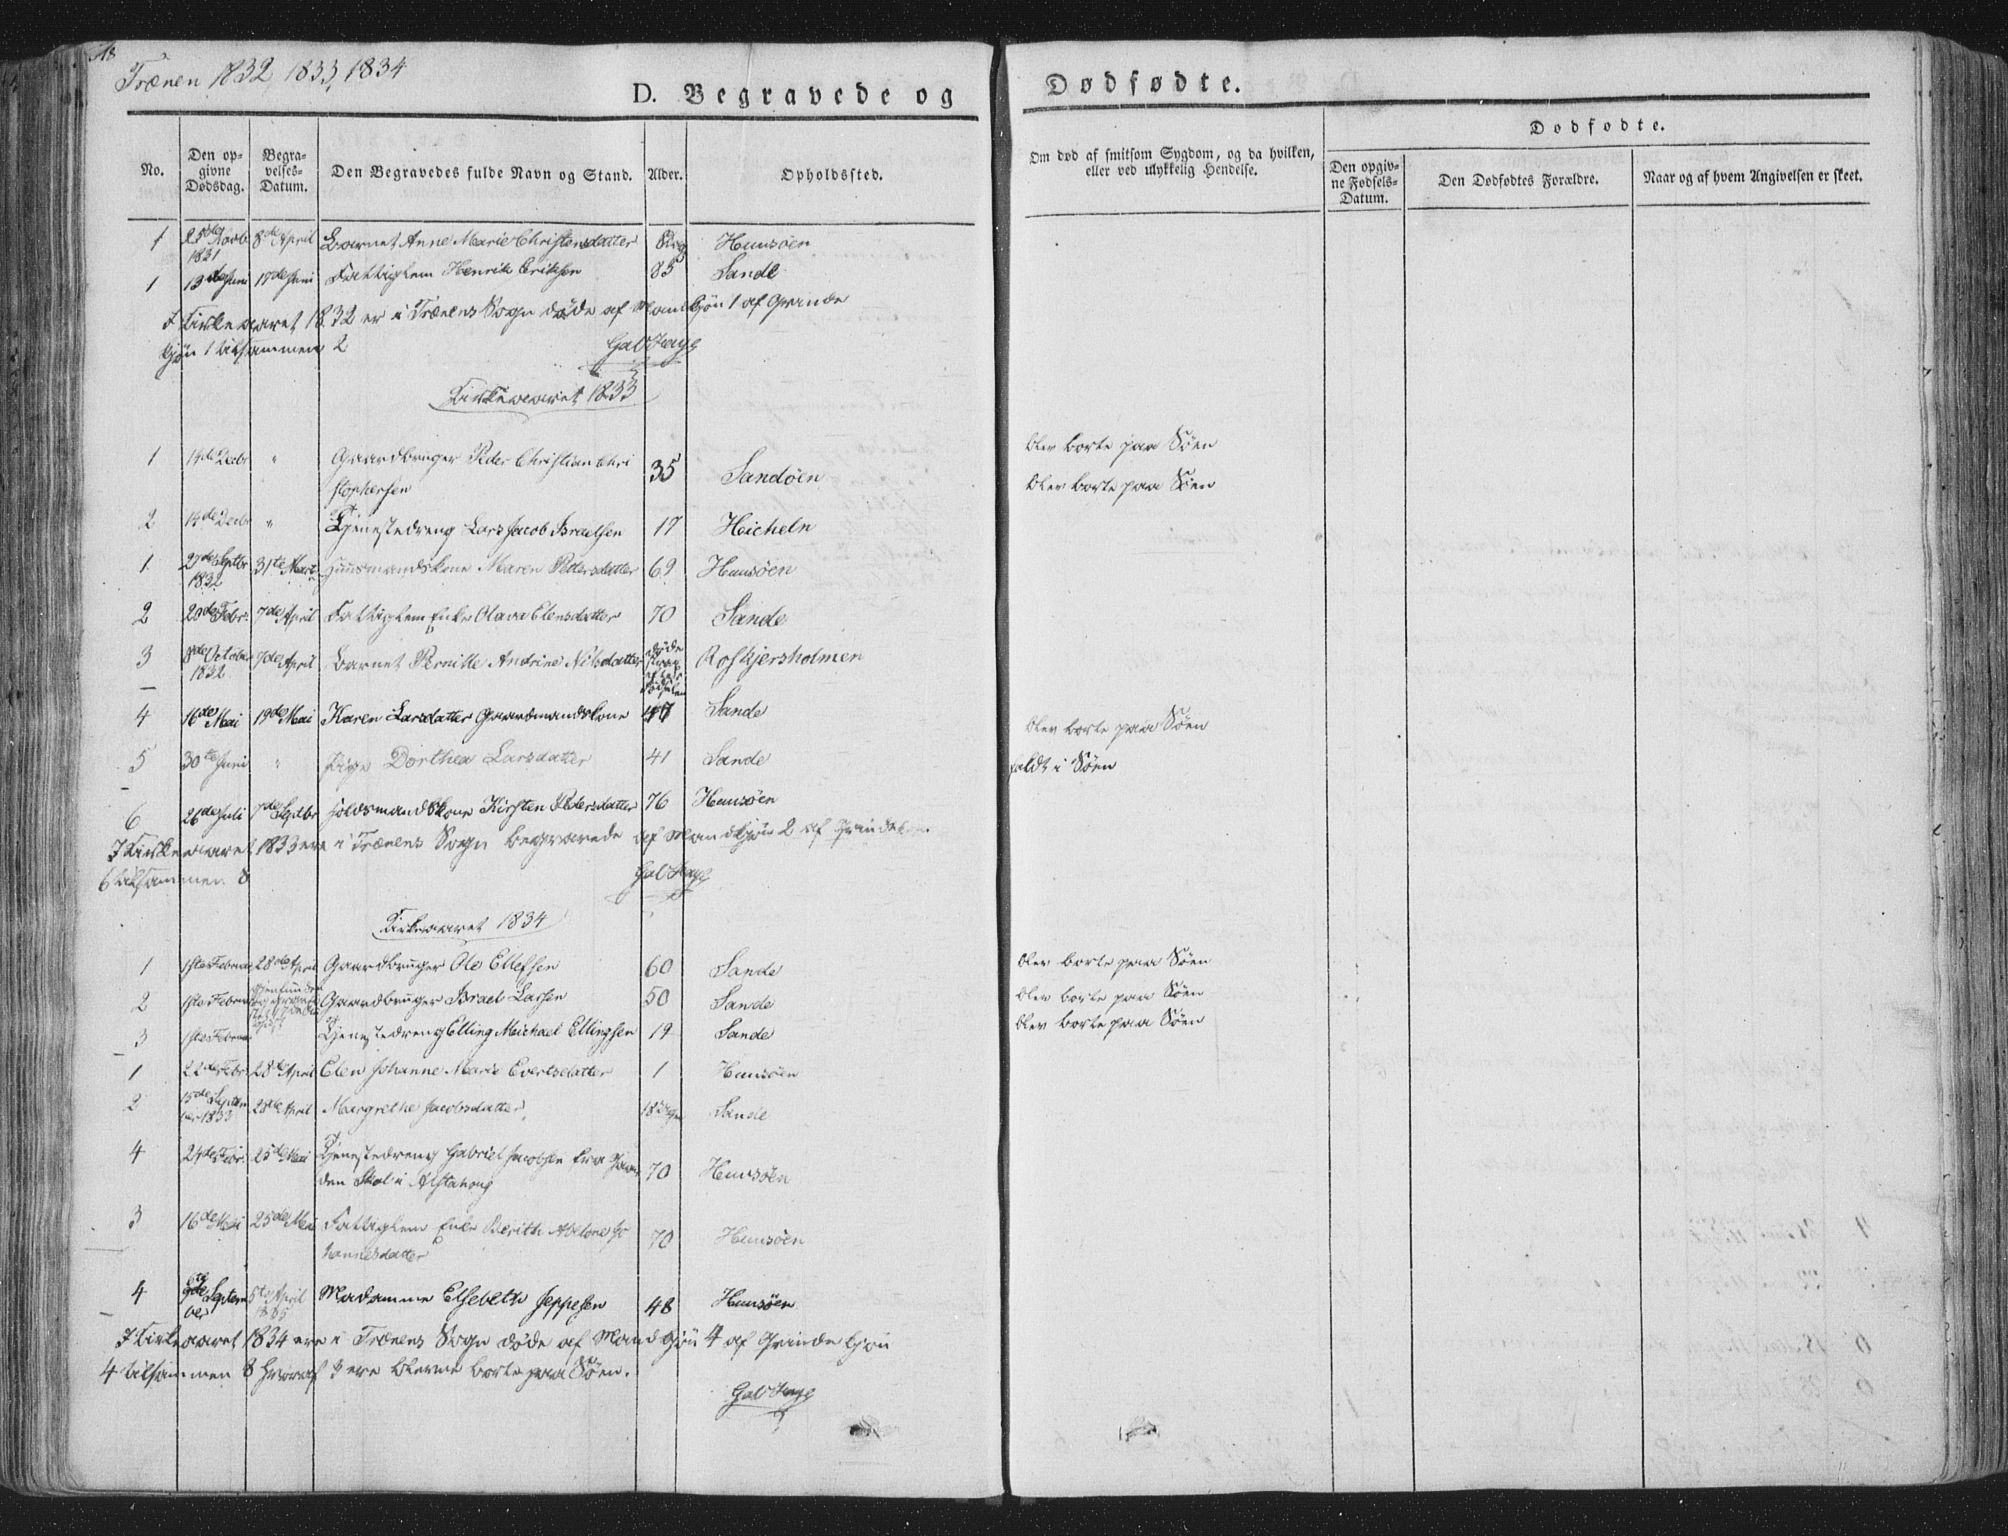 Trænen 1832, 1833, 1834
D. Begravede og
Dødfødte.
No.
Den opgivne Dødsdag.
Begravelses-Datum.
Den Begravedes fulde Navn og Stand.
Alder.
Opholdssted.
Om død af smitsom Sygdom, og da hvilken, eller ved ulykkelig Hendelse.
Dødfødte.
Den opgivne Fødsels-Datum.
Den Dødfødtes Forældre.
Naar og af hvem Angivelsen er skeet.
1 25de Novb 1831 8de April Barnet Anne Marie Christensdatter Huusøen
1 13de Juni 17de Juni Fattiglem Henrik Eriksen 85 Sande
I Kirkeaaret 1832 er i Trænens Sogn døde af Mandkjøn 1 af Qvinde
kjøn 1 tilsammen 2
Kirkeaaret 1833
1 14de Decbr " Gaardbruger Peder Christian Chri
stophersen 35 Sandøen blev borte paa Søen
2 14de Decbr " Tjenestedreng Lars Jacob Israelsen 17 Heicheln blev borte paa Søen
1 27de Septbr 1832 31te Mart Huusmandskone Maren Pedersdatter 69 Huusøen
2 20de Febr. 7de April Fattiglem Enke Olava Elensdatter 70 Sande
3 8de Octobr 1832 7de April Barnet Pernille Andrine Nilsdatter døde strax efter Fødselen Roskjersholmen
4 16de Mai 19de Mai Karen Larsdatter Gaardmandskone Sande
5 30te Juni " Pige Dorthea Larsdatter 41 Sande blev borte paa Søen
6 26de Juli 7de Septbr Kirsten Pedersdatter 76 Huusøen faldt i Søen
I Kirkeaaret 1833 ere i Trænens Sogn begravede af Mandkjøn 2 af Qvindekjøn
6 tilsammen 8
Kirkeaaret 1834
1 1ste Februar 28de April Gaardbruger Ole Ellefsen 60 Sande blev borte paa Søen
2 1ste Februar Gaardbruger Israel Larsen 50 Sande blev borte paa Søen
3 1ste Februar Tjenestedreng Elling Meichael Ellingsen 19 Sande blev borte paa Søen
1 22de Febr 28de April Elen Johanne Marie Evertsdatter 1 Huusøen
2 15de Septem ber 1833 28de April Margrethe Jacobsdatter Sande
4 24de Febr. 25de Mai Tjenestedreng Gabriel Jacobsen fra
den Skal i Alstahoug 70 Huusøen
3 16de Mai 25de Mai Fattiglem Enke Berith Abelone Jo
hannesdatter 70 Huusøen
4 Septem ber 5te April 1835 Madamme Elsebeth Jeppesen 48 Huusøen
I Kirkeaaret 1834 ere i Trænens Sogn døde af Mandkjøn 4 af Qvindekjøn
4 tilsammen 8 hvoraf 3 ere blevne borte paa Søen.